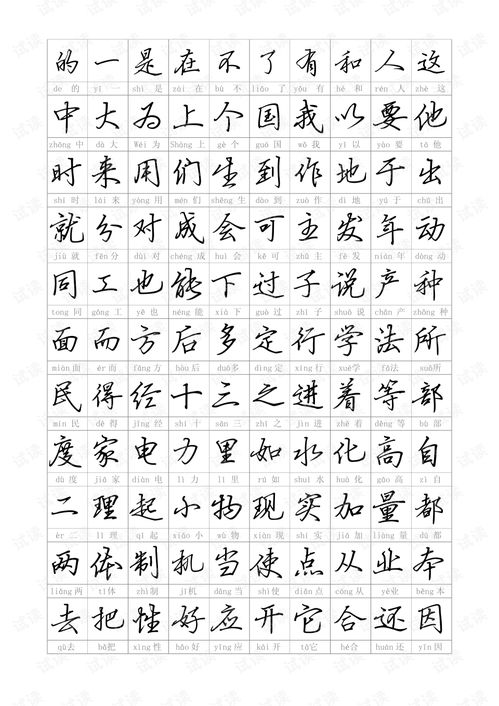 的一是在不了有和人这
de的 yī一 shì是 zài在 bù不 liǎo了 yǒu有 hé和 rén人 zhè这
中大为上个国我以要他
zhōng中 dà大 Wéi为 Shàng上 gè个 guó国 wǒ我 yǐ以 yào要 tā他
时来用们生到作地于出
shí时 lái来 yòng用 mén们 shēng生 dào到 zuò作 dì地 yú于 chū出
就分对成会可主发年动
jiù就 fēn分 duì对 chéng成 huì会 kě可 zhǔ主 fā发 nián年 dòng动
同工也能下过子说产种
tóng同 gōng工 yě也 néng能 xià下 guò过 zhī子 shuō说 chǎn产 zhǒng种
面而方后多定行学法所
miàn面 ér而 fāng方 hòu后 duō多 dìng定 xíng行 xué学 fǎ法 suǒ所
民得经十三之进着等部
mín民 dé得 jīng经 shí十 sān三 zhī之 jìn进 zhe着 děng等 bù部
度家电力里如水化高自
dù度 jiā家 diàn电 lì力 lǐ里 rú如 shuǐ水 huà化 gāo高 zì自
二理起小物现实加量都
èr二 lǐ理 qǐ起 xiǎo小 wù物 xiàn现 shí实 jiā加 liàng量 dū都
两体制机当使点从业本
liǎng两 tǐ体 zhì制 jī机 dāng当 shǐ使 diǎn点 cóng从 yè业 běn本
去把性好应开它合还因
qù去 bǎ把 xìng性 hǎo好 yīng应 kāi开 tā它 hé合 huán还 yīn因